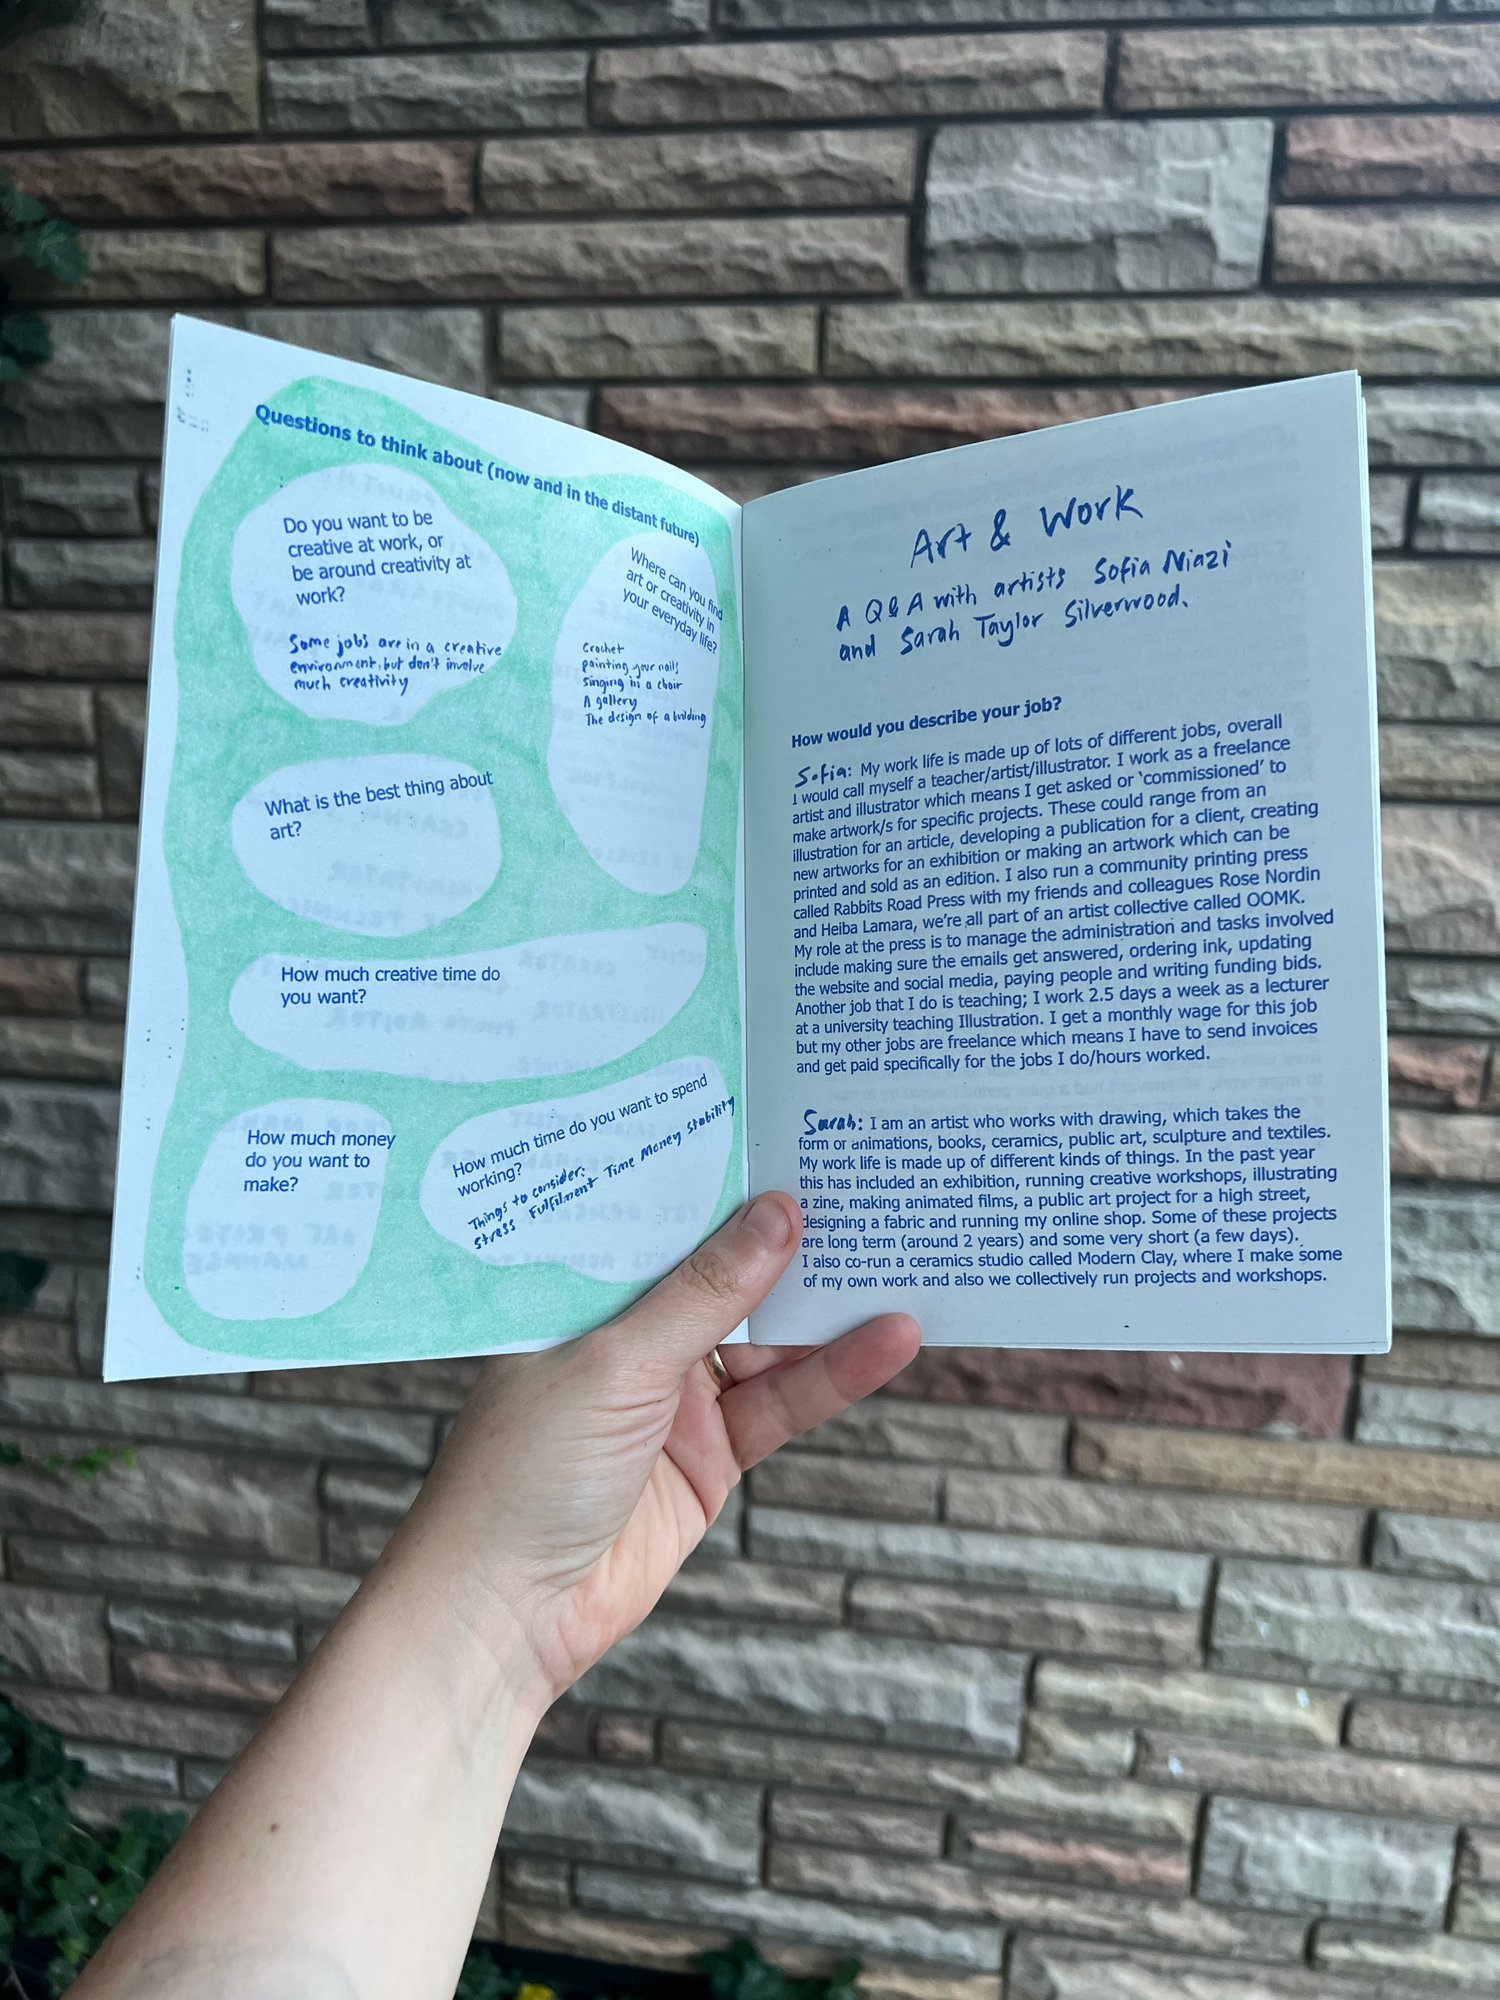 Questions to think about (now and in the distant future)
Do you want to be
creative at work, or
be around creativity at
work?
Some jobs are in a creative
environment, but don't involve
much creativity
Where can you find
art or creativity in
your everyday life?
Crochet
painting your nails
singing in a choir
A gallery
The design of a building
What is the best thing about
art?
How much creative time do
you want?
How much money
do you want to
make?
How much time do you want to spend
working?
Things to consider:
Stress Fulfilment Time Money Stability
Art & Work
A Q&A with artists Sofia Niazi
and Sarah Taylor Silverwood.
How would you describe your job?
Sofia: My work life is made up of lots of different jobs, overall
I would call myself a teacher/artist/illustrator. I work as a freelance
artist and illustrator which means I get asked or ‘commissioned’ to
make artwork/s for specific projects. These could range from an
illustration for an article, developing a publication for a client, creating
new artworks for an exhibition or making an artwork which can be
printed and sold as an edition. I also run a community printing press
called Rabbits Road Press with my friends and colleagues Rose Nordin
and Heiba Lamara, we’re all part of an artist collective called OOMK.
My role at the press is to manage the administration and tasks involved
include making sure the emails get answered, ordering ink, updating
the website and social media, paying people and writing funding bids.
Another job that I do is teaching; I work 2.5 days a week as a lecturer
at a university teaching Illustration. I get a monthly wage for this job
but my other jobs are freelance which means I have to send invoices
and get paid specifically for the jobs I do/hours worked.
Sarah: I am an artist who works with drawing, which takes the
form of animations, books, ceramics, public art, sculpture and textiles.
My work life is made up of different kinds of things. In the past year
this has included an exhibition, running creative workshops, illustrating
a zine, making animated films, a public art project for a high street,
designing a fabric and running my online shop. Some of these projects
are long term (around 2 years) and some very short (a few days).
I also co-run a ceramics studio called Modern Clay, where I make some
of my own work and also we collectively run projects and workshops.